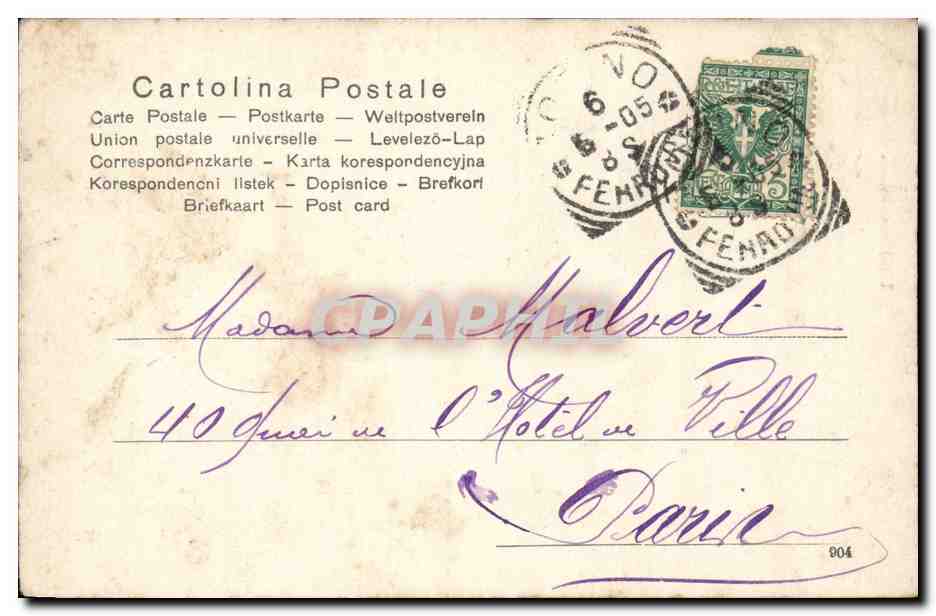 Cartolina Postale
Carte Postale — Postkarte — Weltpostverein
Union postale universelle — Levelezö-Lap
Correspondenzkarte - Karta korespondencyjna
Korespondencni listek - Dopisnice - Brefkort
Briefkaart — Post card
6
-05
8 S
FERROVIA
FERROVIA
Madame Malvert
CPAPHIL
40 Quai de l'Hôtel de Ville
Paris
904